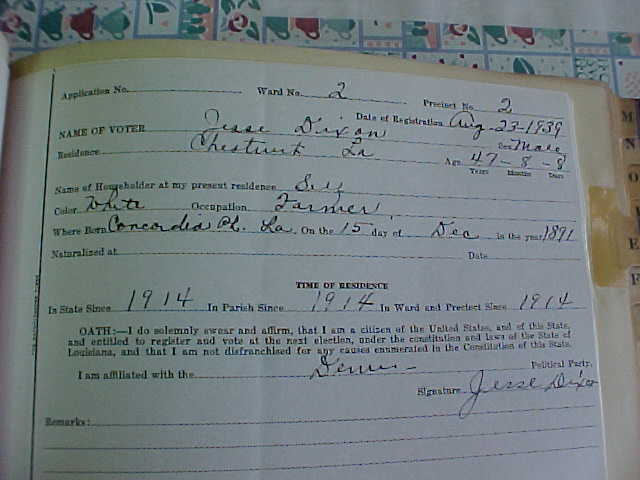 Application No. Ward No. 2 Precinct No. 2
Date of Registration Aug-23-1939
NAME OF VOTER Jesse Dixon Sex Male
Residence Chestnut La Age 47-8-8
Years Months Days
Name of Householder at my present residence Self
Color White Occupation Farmer
Where Born Concordia Ph. La. On the 15 day of Dec in the year 1891
Naturalized at Date
TIME OF RESIDENCE
In State Since 1914 In Parish Since 1914 In Ward and Precinct Since 1914
OATH:—I do solemnly swear and affirm, that I am a citizen of the United States, and of this State,
and entitled to register and vote at the next election, under the constitution and laws of the State of
Louisiana, and that I am not disfranchised for any causes enumerated in the Constitution of this State.
I am affiliated with the Dem- Political Party.
Signature Jesse Dixon
Remarks:
M
N
O
E
F